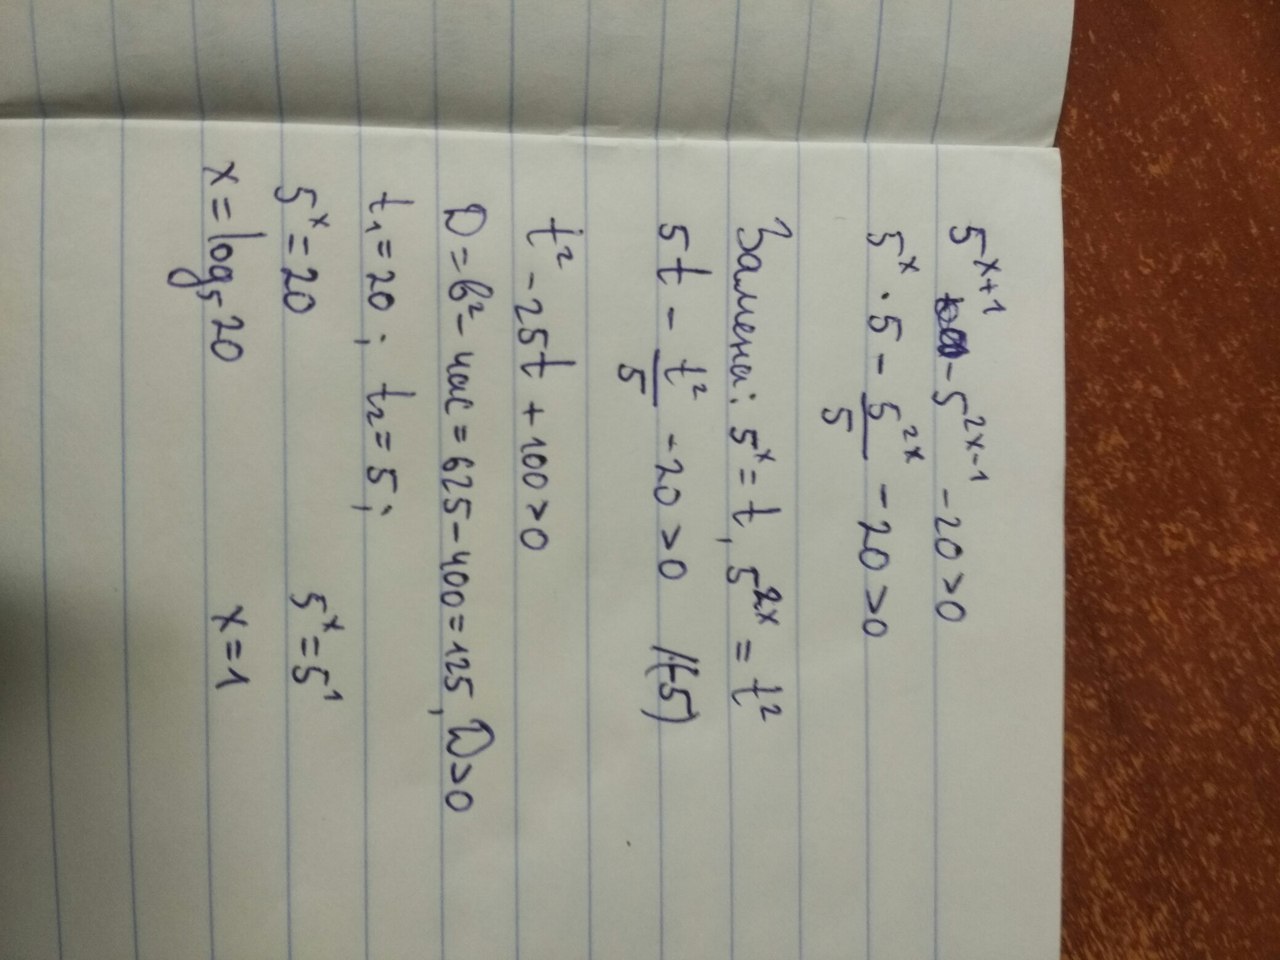 5^{x+1} - 5^{2x-1} - 20 > 0
5^x · 5 - \frac{5^{2x}}{5} - 20 > 0
Замена: 5^x = t, 5^{2x} = t^2
5t - \frac{t^2}{5} - 20 > 0 |(-5)
t^2 - 25t + 100 > 0
D = b^2 - 4ac = 625 - 400 = 125, D > 0
t_1 = 20; t_2 = 5;
5^x = 20 5^x = 5^1
x = log_5 20 x = 1